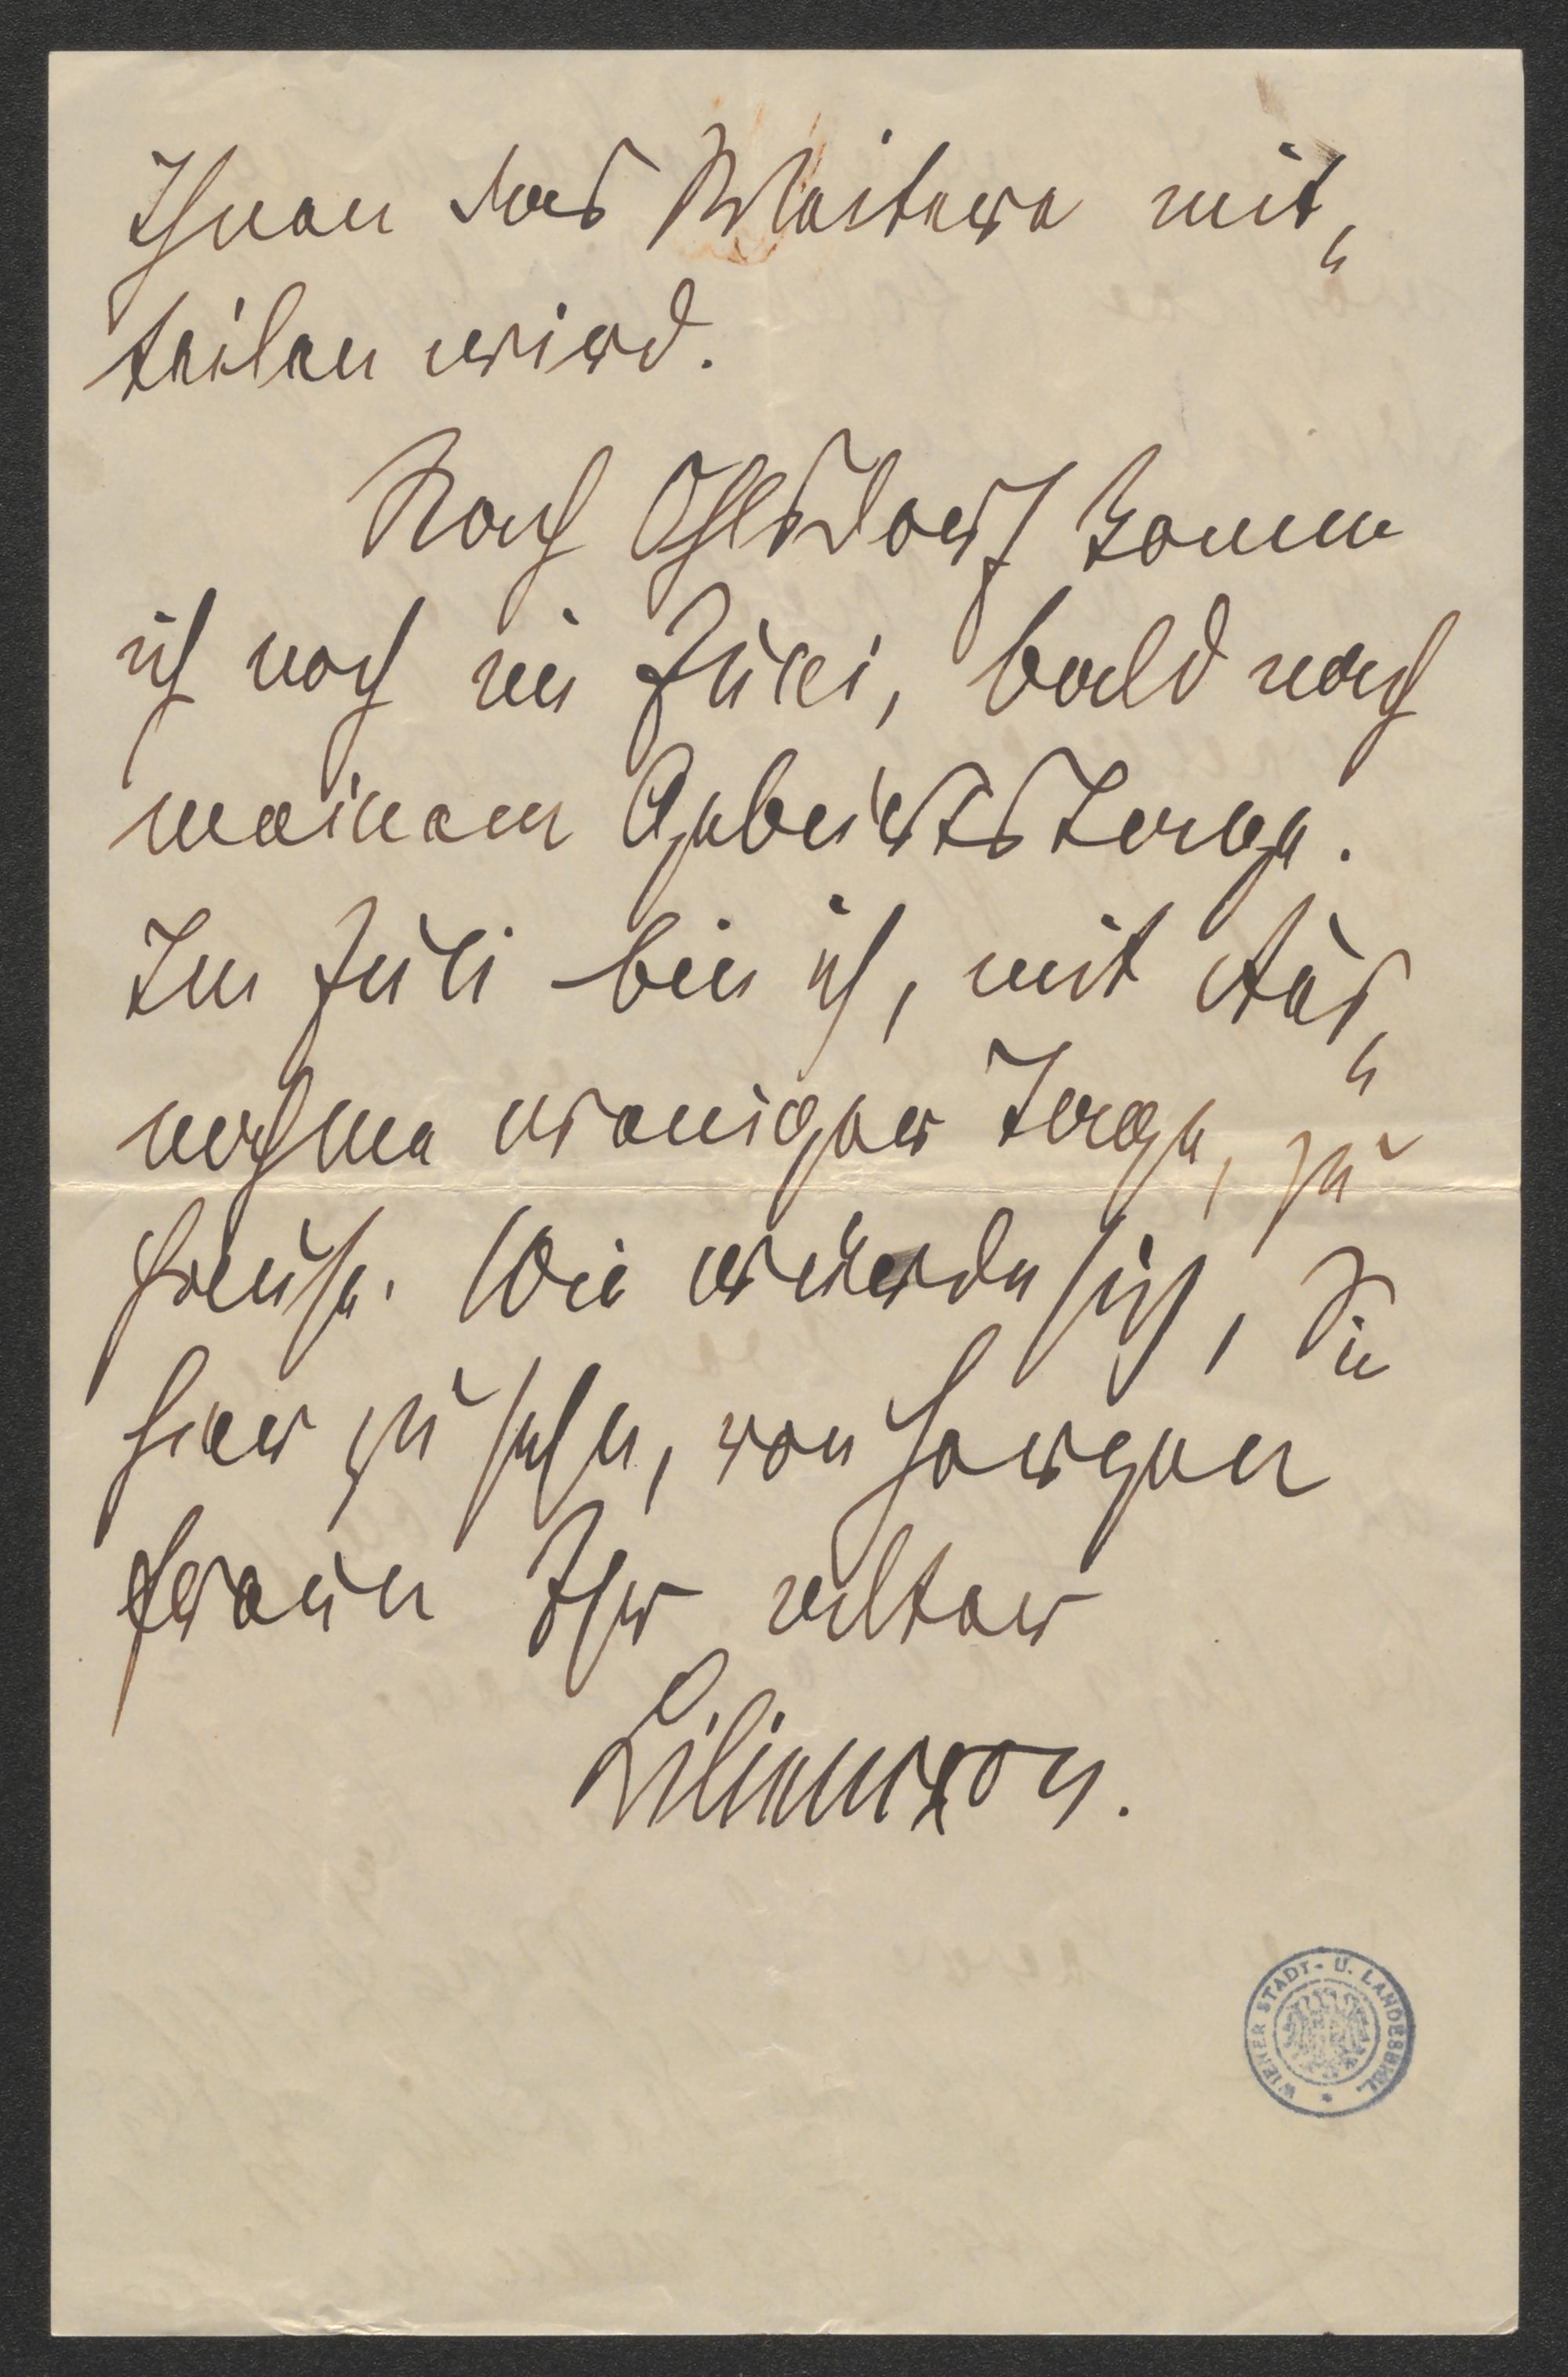 Ihnen das Weitere mit„
teilen wird.
Nach Ohlsdorf komm
ich noch im Juni, bald nach
meinem Geburtstage.
Im Juli bin ich, mit Aus„
nahme weniger Tage, zu
Hause. Wie würde sich, Sie
hier zu sehn, von Herzen
freun Ihr alter
Liliencron.
WIENER STADT- U. LANDESBIBL.